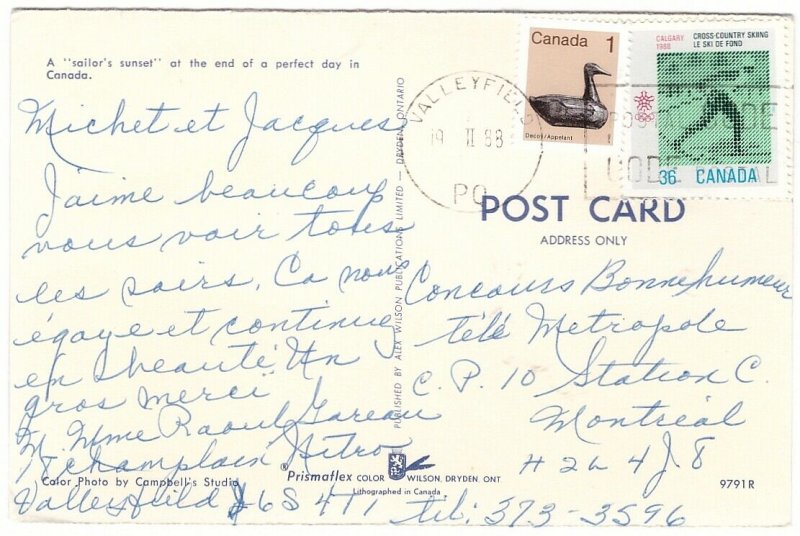 A "sailor's sunset" at the end of a perfect day in
Canada.
Michel et Jacques
J'aime beaucoup
vous voir tous
les soirs. Ca nous
égaye et continuez
en beauté. Un
gros merci
M. Mme Raoul Gareau
78 Champlain Nitro
Valleyfield J6S 4T1
tél: 373-3596
Color Photo by Campbell's Studio
PUBLISHED BY ALEX WILSON PUBLICATIONS LIMITED — DRYDEN, ONTARIO
®Prismaflex COLOR WILSON, DRYDEN, ONT
Lithographed in Canada
VALLEYFIELD
19 II 88
PQ
Canada 1
Decoy/Appelant
CALGARY
1988
CROSS-COUNTRY SKIING
LE SKI DE FOND
36 CANADA
CODE
POST CARD
ADDRESS ONLY
Concours Bonnehumeur
télé Metropole
C.P. 10 Station C.
Montréal
H2L 4J8
9791R